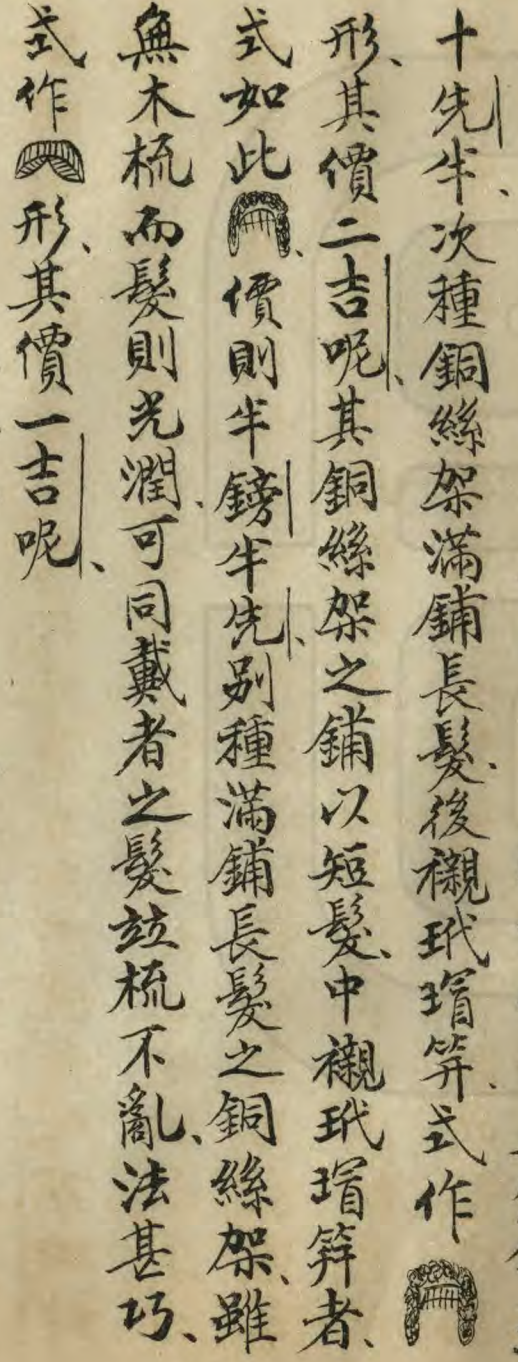 十先半、次種銅絲架滿鋪長髮、後襯玳瑁笄、式作
形、其價二吉呢、其銅絲架之鋪以短髮、中襯玳瑁笄者、
式如此、價則半鎊半先、別種滿鋪長髮之銅絲架、雖
無木梳而髮則光潤、可同戴者之髮竝梳不亂、法甚巧、
式作形、其價一吉呢、